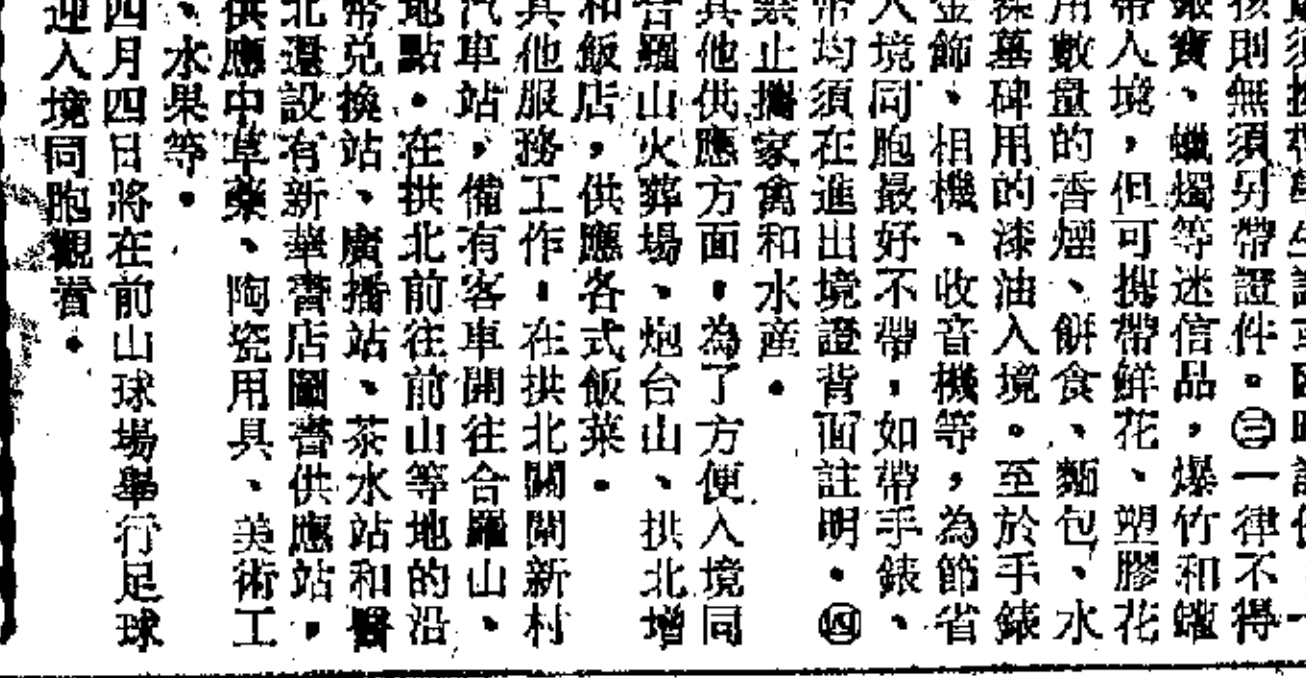 孩則無須另帶證件。㊂一律不得
銀寶、蠟燭等迷信品，爆竹和蠟
帶入境，但可携帶鮮花、塑膠花
用數量的香煙、餅食、麵包、水
墓碑用的漆油入境。至於手錶
金飾、相機、收音機等，為節省
入境同胞最好不帶，如帶手錶、
幣均須在進出境證背面註明。㊃
禁止攜家禽和水產。
其他供應方面，為了方便入境同
合羅山火葬場、炮台山、拱北增
和飯店，供應各式飯菜。
其他服務工作，在拱北關閘新村
汽車站，備有客車開往合羅山、
地點。在拱北前往前山等地的沿
幣兌換站、廣播站、茶水站和醫
北還設有新華書店圖書供應站，
供應中草藥、陶瓷用具、美術工
、水果等。
四月四日將在前山球場舉行足球
迎入境同胞觀看。